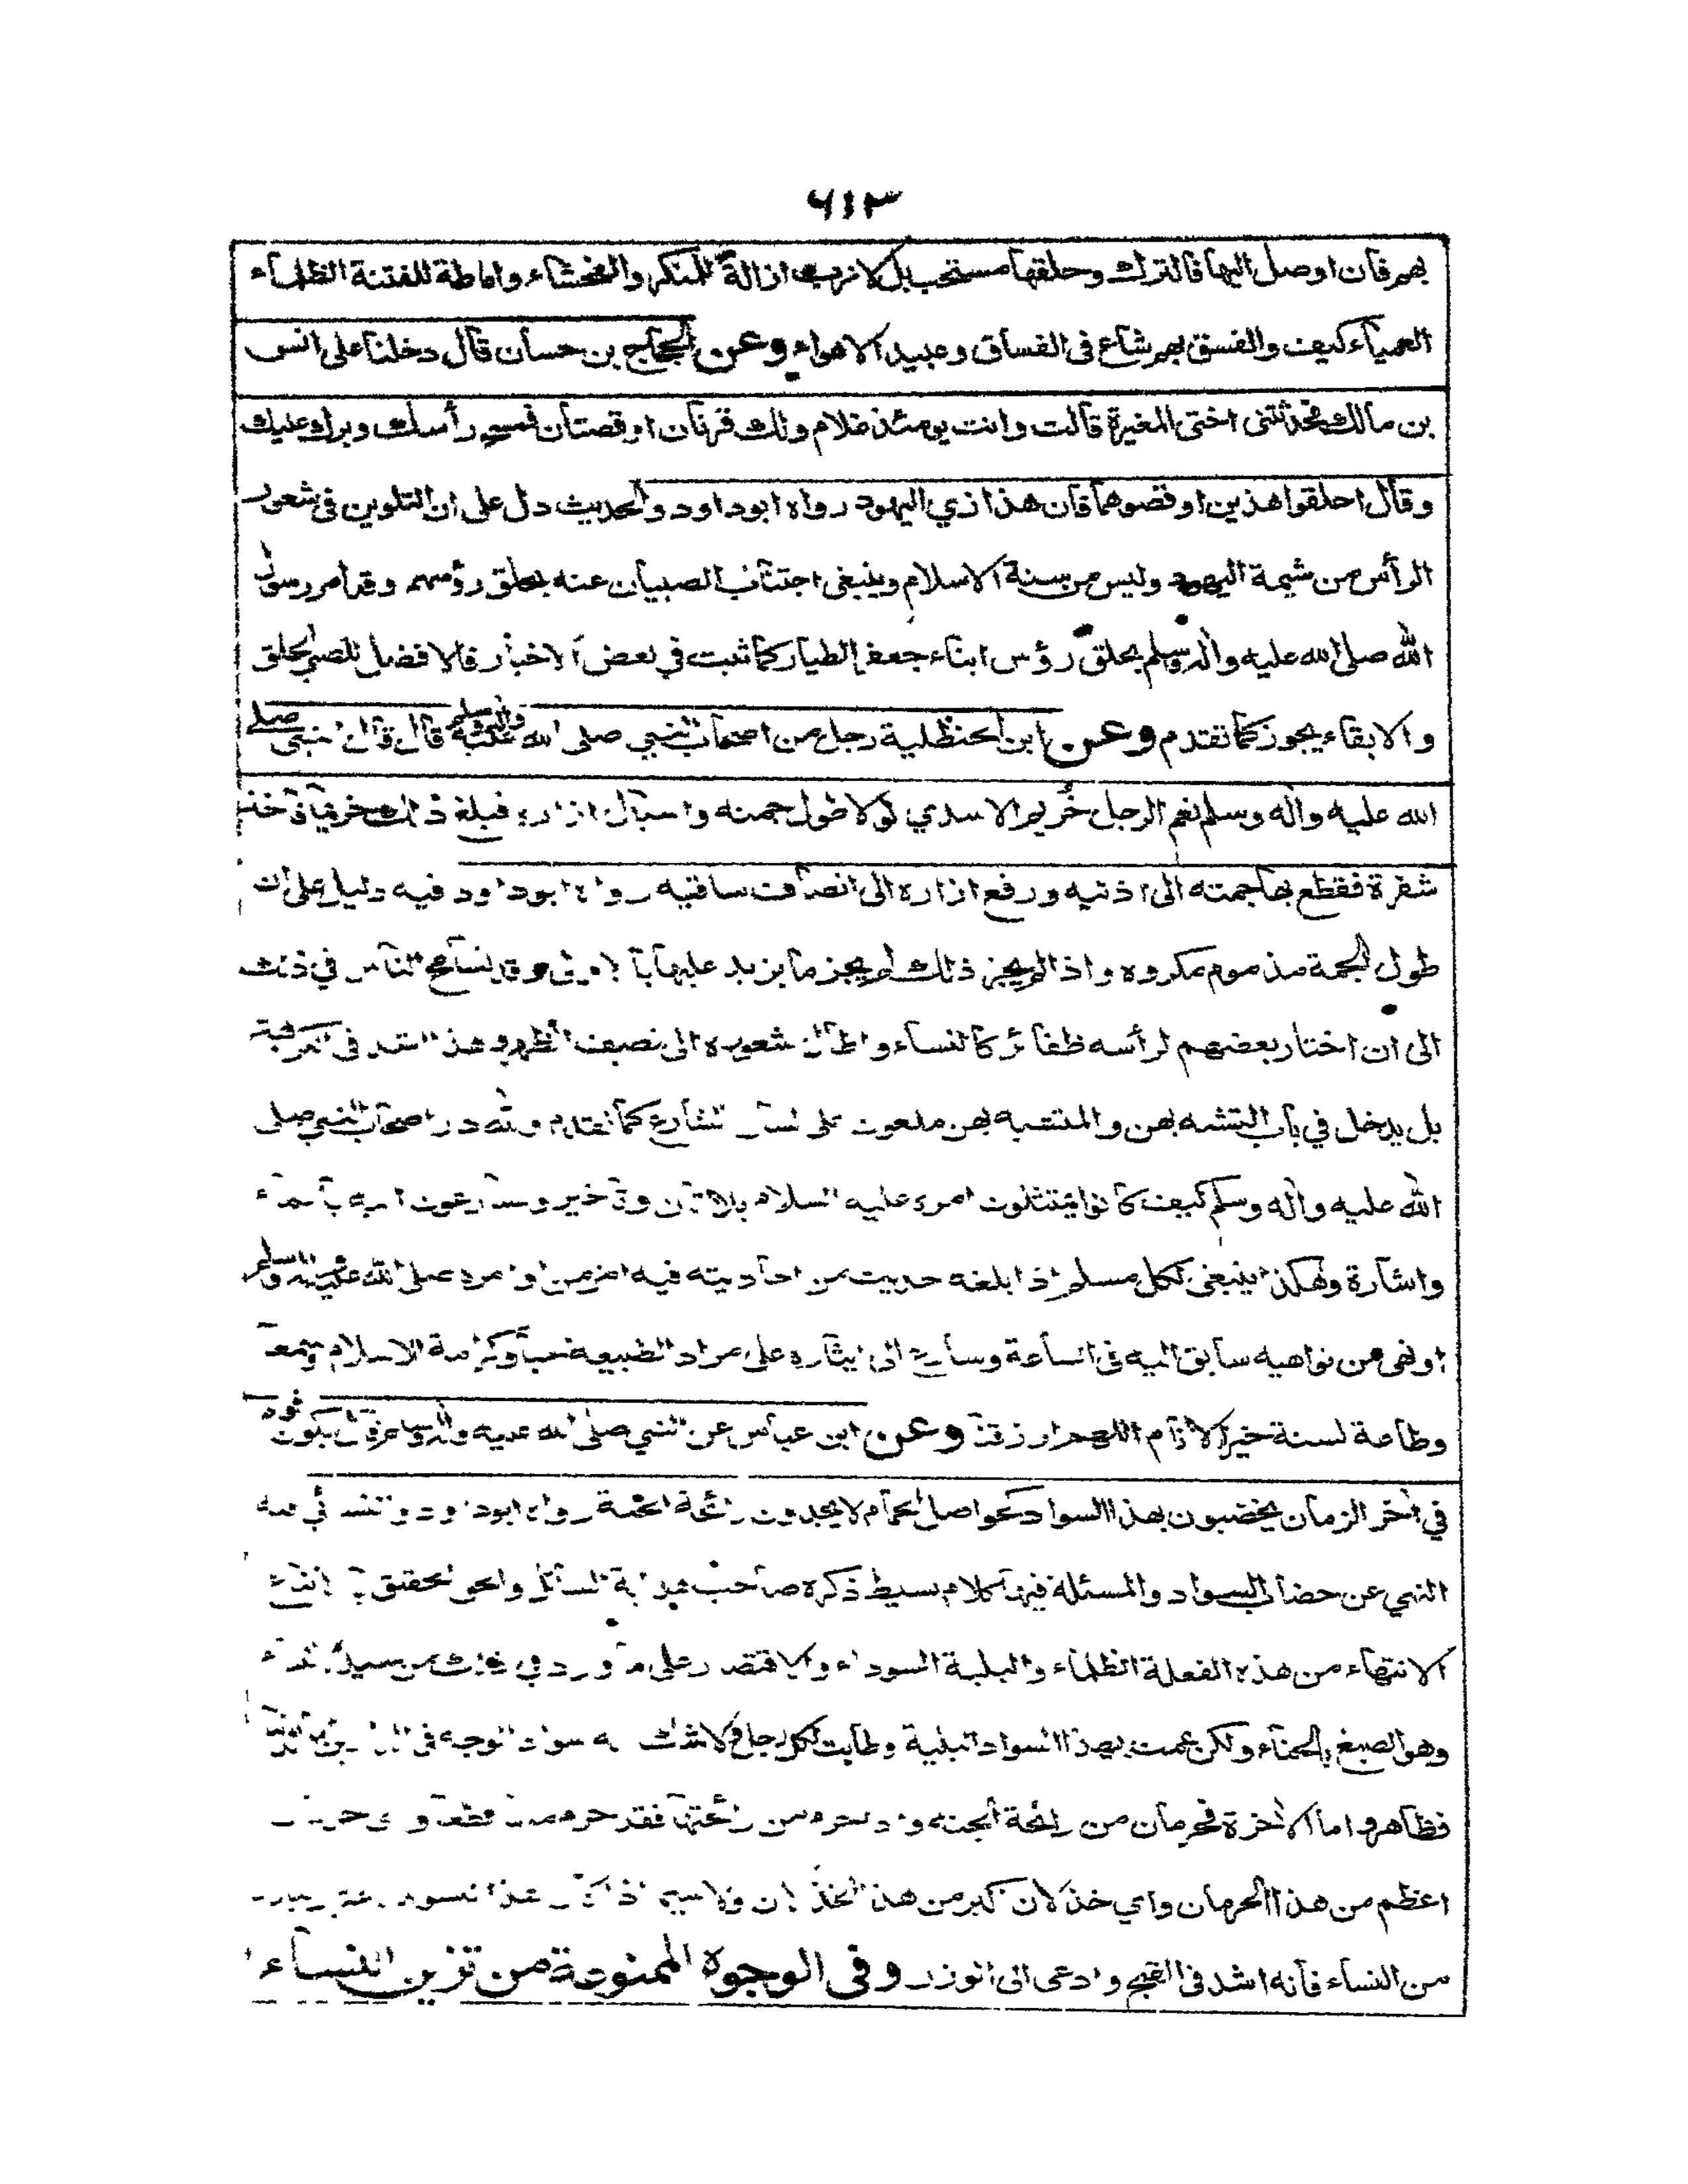 ٦١٣
بهم فان اوصل اليها فالترك وحلقها مستحب بل لازم ازالة للمنكر والفحشاء واماطة للفتنة الظلماء
العمياء كيف والفسق بهم شاع فى الفساق وعبيد الاهواء وعن الحجاج بن حسان قال دخلنا على انس
بن مالك فحدثتنى اختى المغيرة قالت وانت يومئذ غلام ولك قرنان او قصتان فمسح رأسك وبرك عليك
وقال احلقوا هذين او قصوهما فان هذا زي اليهود رواه ابوداود والحديث دل على ان التلوين فى شعور
الرأس من شيمة اليهود وليس من سنة الاسلام وينبغى اجتناب الصبيان عنه بحلق رؤسهم وقد امر رسول
الله صلى الله عليه واله وسلم بحلق رؤس ابناء جعفر الطيار كما ثبت في بعض الاخبار فالافضل للصبي الحلق
والابقاء يجوز كما تقدم وعن ابن الحنظلية رجل من اصحاب النبي صلى الله عليه واله وسلم قال قال النبى صلى
الله عليه واله وسلم نعم الرجل خُريم الاسدي لولا طول جمته واسبال ازاره فبلغ ذلك خريما فاخذ
شفرة فقطع بها جمته الى اذنيه ورفع ازاره الى انصاف ساقيه رواه ابوداود فيه دليل على ان
طول الجمة مذموم مكروه واذا لم يجز ذلك لم يجز ما يزيد عليها بالاولى وقد تسامح الناس في ذلك
الى ان اختار بعضهم لرأسه ظفائر كالنساء واطال شعوره الى نصف الظهر وهذا اشد فى الكراهة
بل يدخل في باب التشبه بهن والمتشبه بهن ملعون على لسان الشارع كما تقدم ولله در اصحاب النبي صلى
الله عليه واله وسلم كيف كانوا يمتثلون امره عليه السلام بلا توان وتاخير وسارعون اليه بايماء
واشارة وهكذا ينبغى لكل مسلم اذا بلغه حديث من احاديثه فيه امر من اوامره صلى الله عليه واله وسلم
اونهى من نواهيه سابق اليه فى الساعة وسارع الى ايثاره على مراد الطبيعة حبا وكرامة الاسلام وسمعا
وطاعة لسنة خير الانام اللهم ارزقنا وعن ابن عباس عن النبي صلى الله عليه واله وسلم قال يكون قوم
في اخر الزمان يخضبون بهذا السواد كحواصل الحمام لا يجدون رائحة الجنة رواه ابوداود والنسائي فيه
النهي عن خضاب السواد والمسئلة فيها كلام بسيط ذكره صاحب هداية السائل والحق الحقيق
الانتهاء من هذه الفعلة الظلماء والبلية السوداء والاقتصار على ما ورد في ذلك من سيد
وهو الصبغ بالحناء ولكن عمت بهذا السواد البلية وطابت لكل رجل ولاشك سواد الوجه فى
فظاهر واما الاخرة فحرمان من رائحة الجنة
اعظم من هذا الحرمان واي خذلان اكبر من هذا الخذلان ولا سيما اذا
من النساء فانه اشد فى القبح وادعى الى الوزر وفى الوجوه الممنوعة من تزين النساء